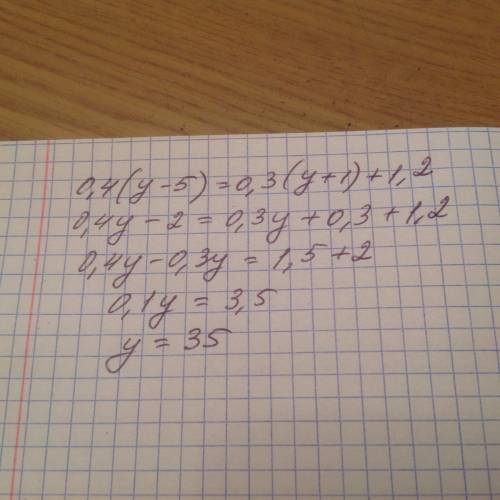 0,4(y-5)=0,3(y+1)+1,2
0,4y-2=0,3y+0,3+1,2
0,4y-0,3y=1,5+2
0,1y=3,5
y=35